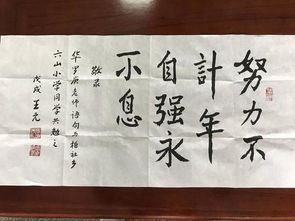 努力不
計年
自强永
不息
敬录
华罗庚老师语句与杨社乡
六山小学同学共勉之
戊戌 王元